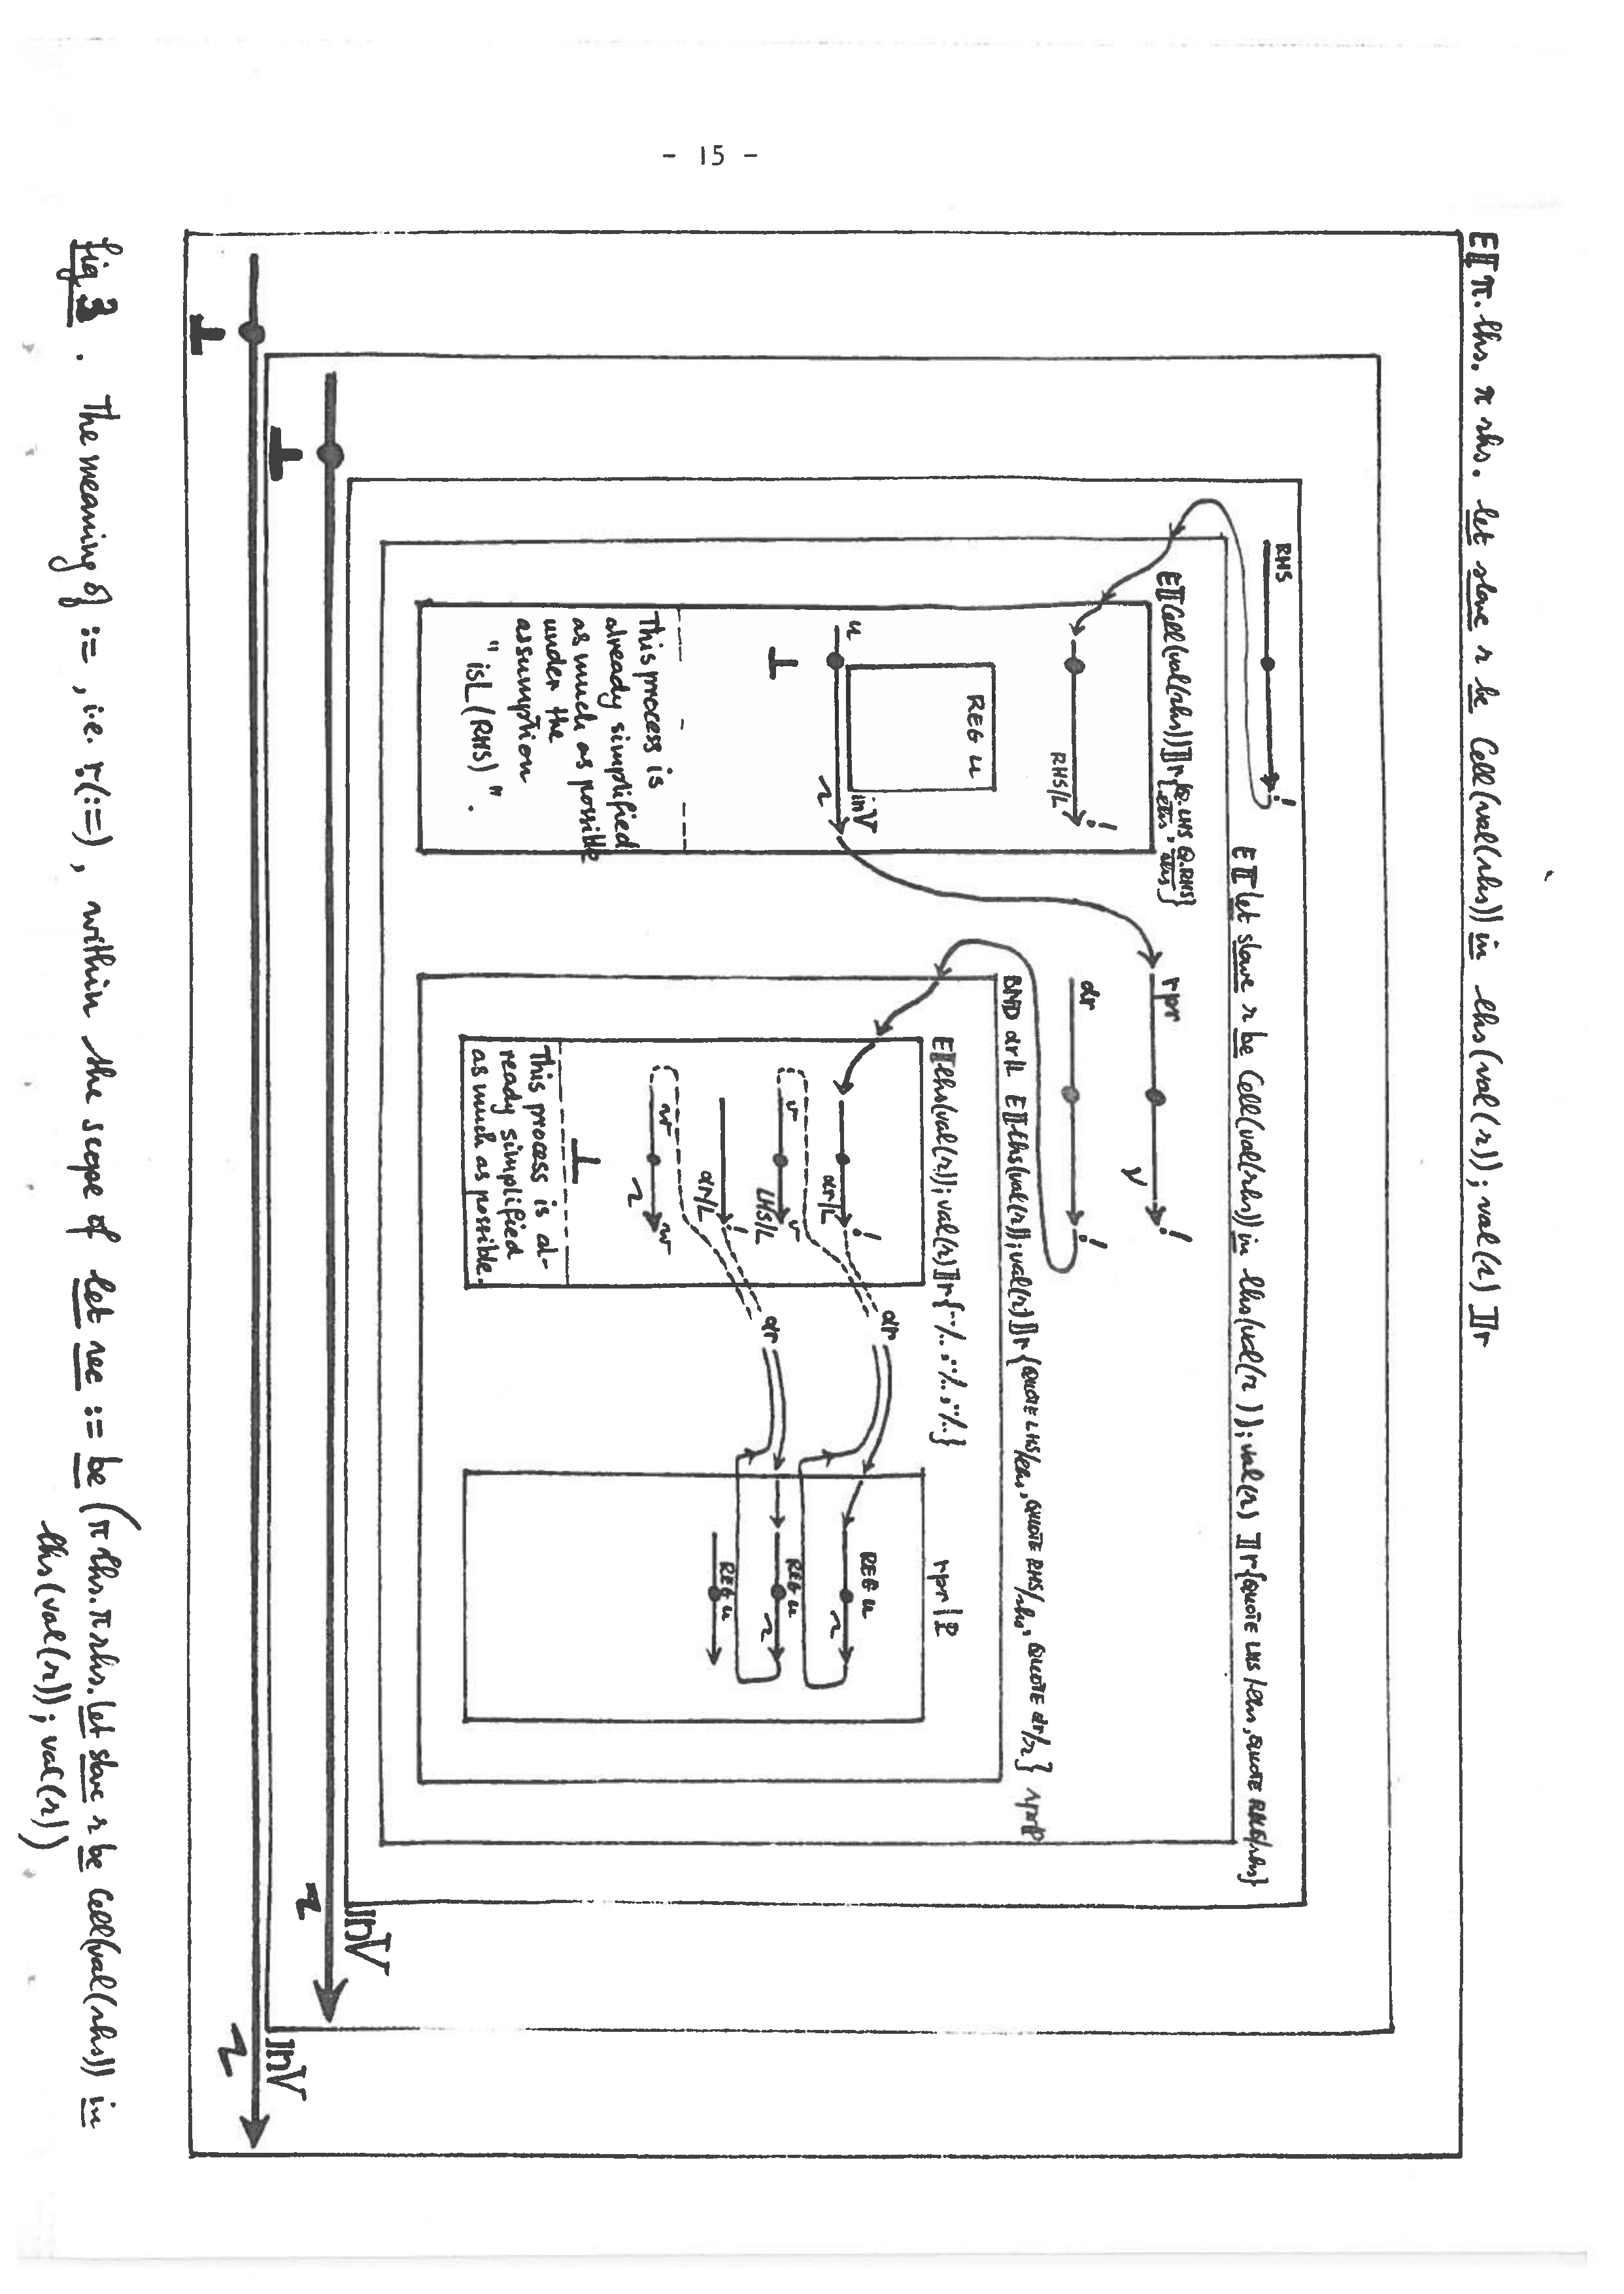 - 15 -
E⟦π.lhs. π rhs. let slave r be Cell(val(rhs)) in lhs(val(r)); val(r)⟧r
RHS
!
E⟦let slave r be Cell(val(rhs)) in lhs(val(r)); val(r)⟧r{QUOTE LHS/lhs, QUOTE RHS/rhs}
E⟦Cell(val(rhs))⟧r{Q.LHS/lhs, Q.RHS/rhs}
!
RHS/L
REG u
u
inV
r
⊥
This process is
already simplified
as much as possible
under the
assumption
"isL(RHS)".
rpr
!
ν
αr
!
BND αr/L E⟦lhs(val(r)); val(r)⟧r{QUOTE LHS/lhs, QUOTE RHS/rhs, QUOTE αr/r} rpr|P
E⟦lhs(val(r)); val(r)⟧r{../.., ../.., ../..}
!
αr/L
v
v
LHS/L
!
αr/L
w
w
r
⊥
This process is al-
ready simplified
as much as possible.
αr
αr
rpr|P
REG u
r
REG u
r
REG u
⊥
inV
r
⊥
inV
r
fig 3. The meaning of :=, i.e. r(:=), within the scope of let rec := be (π lhs. π rhs. let slave r be Cell(val(rhs)) in
lhs(val(r)); val(r))